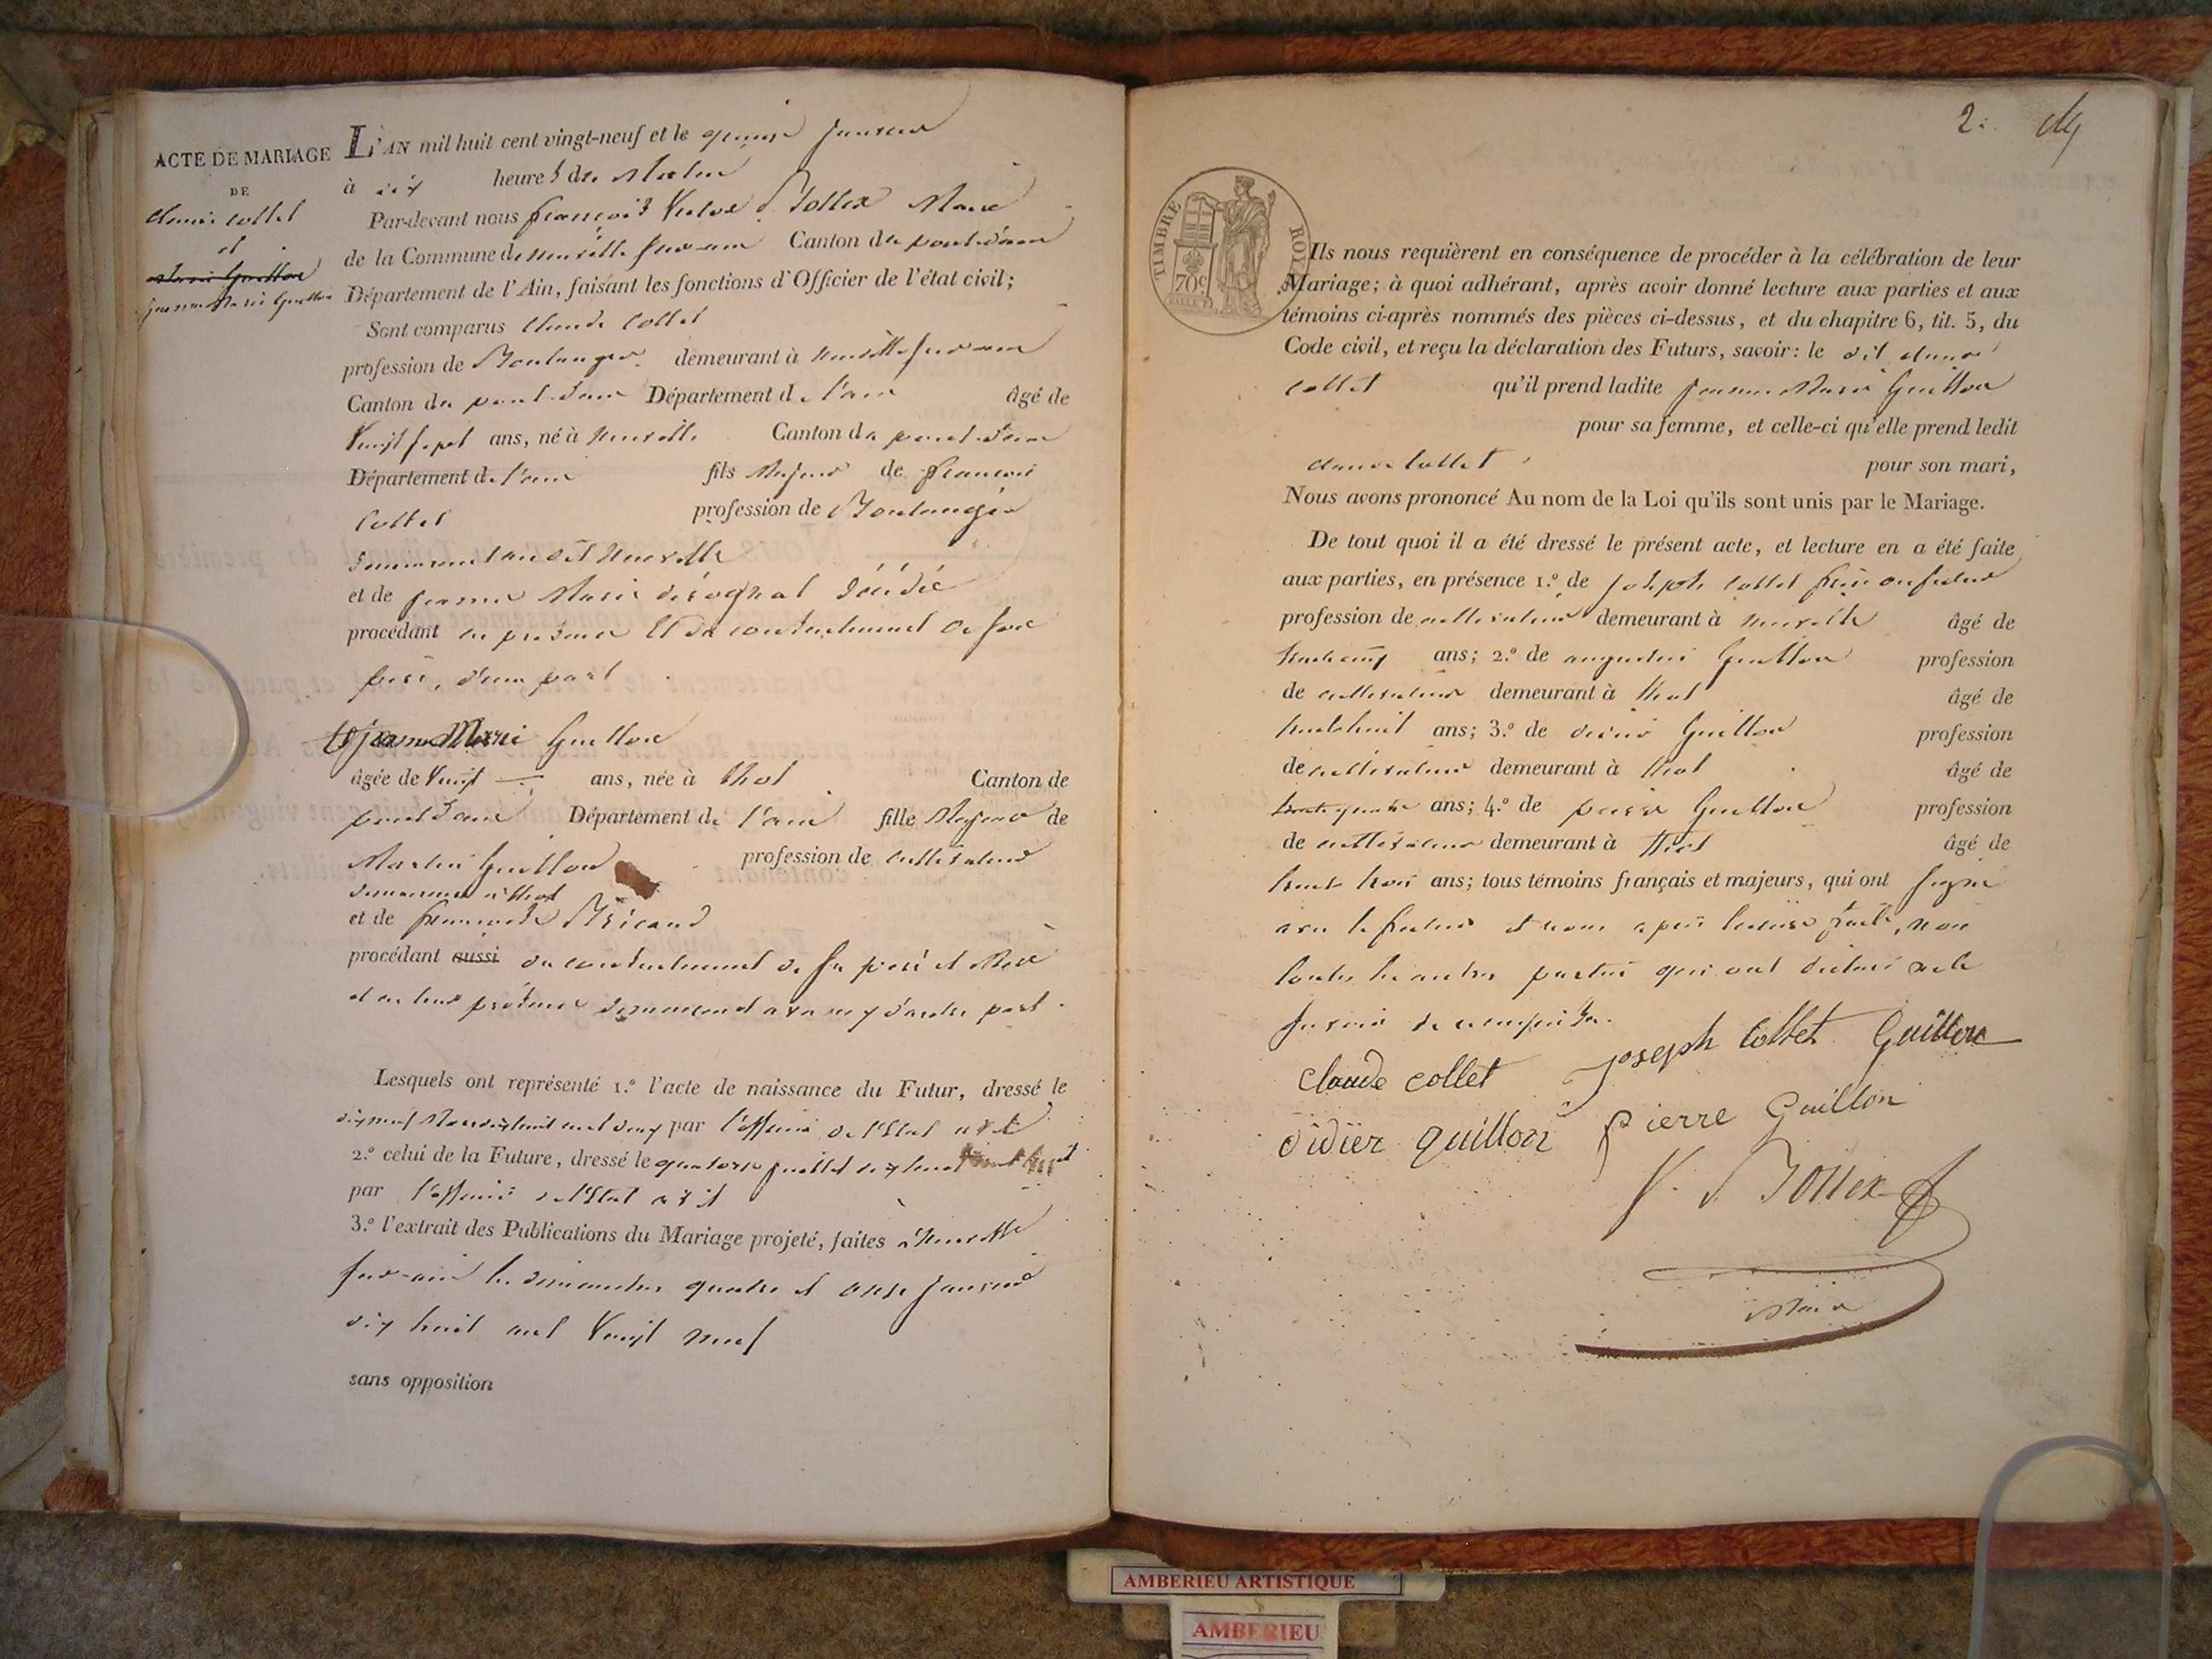 ACTE DE MARIAGE
DE
claude collet
et
Marie Guillon
jeanne Marie Guillon
L'AN mil huit cent vingt-neuf et le quinze janvier
à dix heures du Matin
Par-devant nous françois Victor Bollex Maire
de la Commune de neuville sur-ain Canton du pont-d'ain
Département de l'Ain, faisant les fonctions d'Officier de l'état civil;
Sont comparus Claude Collet
profession de Boulanger demeurant à neuville sur ain
Canton du pont-d'ain Département de l'ain âgé de
Vingt sept ans, né à neuville Canton du pont-d'ain
Département de l'ain fils Majeur de françois
Collet profession de Boulanger
demeurant au dit Neuville
et de jeanne Marie décédée
procédant en présence et du consentement de son
père, d'une part
Et jeanne Marie Guillon
âgée de Vingt ans, née à thol Canton de
pont d'ain Département de l'ain fille Majeure de
Martin Guillon profession de cultivateur
demeurant à thol
et de françoise
procédant aussi du consentement de ses père et Mère
et en leur présence demeurant avec eux d'autre part.
Lesquels ont représenté 1.º l'acte de naissance du Futur, dressé le
dixneuf Mars dixhuit cent deux par l'officier de l'Etat civil
2.º celui de la Future, dressé le quatorze juillet dix huit cent
par l'officier de l'Etat civil
3.º l'extrait des Publications du Mariage projeté, faites à Neuville
sur-ain les dimanches quatre et onze janvier
dix huit cent Vingt neuf
sans opposition
2.
TIMBRE ROYAL
70c
Ils nous requièrent en conséquence de procéder à la célébration de leur
Mariage; à quoi adhérant, après avoir donné lecture aux parties et aux
témoins ci-après nommés des pièces ci-dessus, et du chapitre 6, tit. 5, du
Code civil, et reçu la déclaration des Futurs, savoir: le dit claude
collet qu'il prend ladite jeanne Marie Guillon
pour sa femme, et celle-ci qu'elle prend ledit
claude Collet pour son mari,
Nous avons prononcé Au nom de la Loi qu'ils sont unis par le Mariage.
De tout quoi il a été dressé le présent acte, et lecture en a été faite
aux parties, en présence 1.º de joseph collet frère au futur
profession de cultivateur demeurant à neuville âgé de
ans; 2.º de augustin Guillon profession
de cultivateur demeurant à thol âgé de
trente huit ans; 3.º de didier Guillon profession
de cultivateur demeurant à thol âgé de
trente quatre ans; 4.º de pierre Guillon profession
de cultivateur demeurant à thol âgé de
trente trois ans; tous témoins français et majeurs, qui ont signé
avec le futur et nous après lecture faite, non
toutes les autres parties qui ont déclaré ne le
savoir de ce requises.
claude collet joseph collet Guillon
didier guillon pierre Guillon
V. Bollex
Maire
AMBERIEU ARTISTIQUE
AMBERIEU